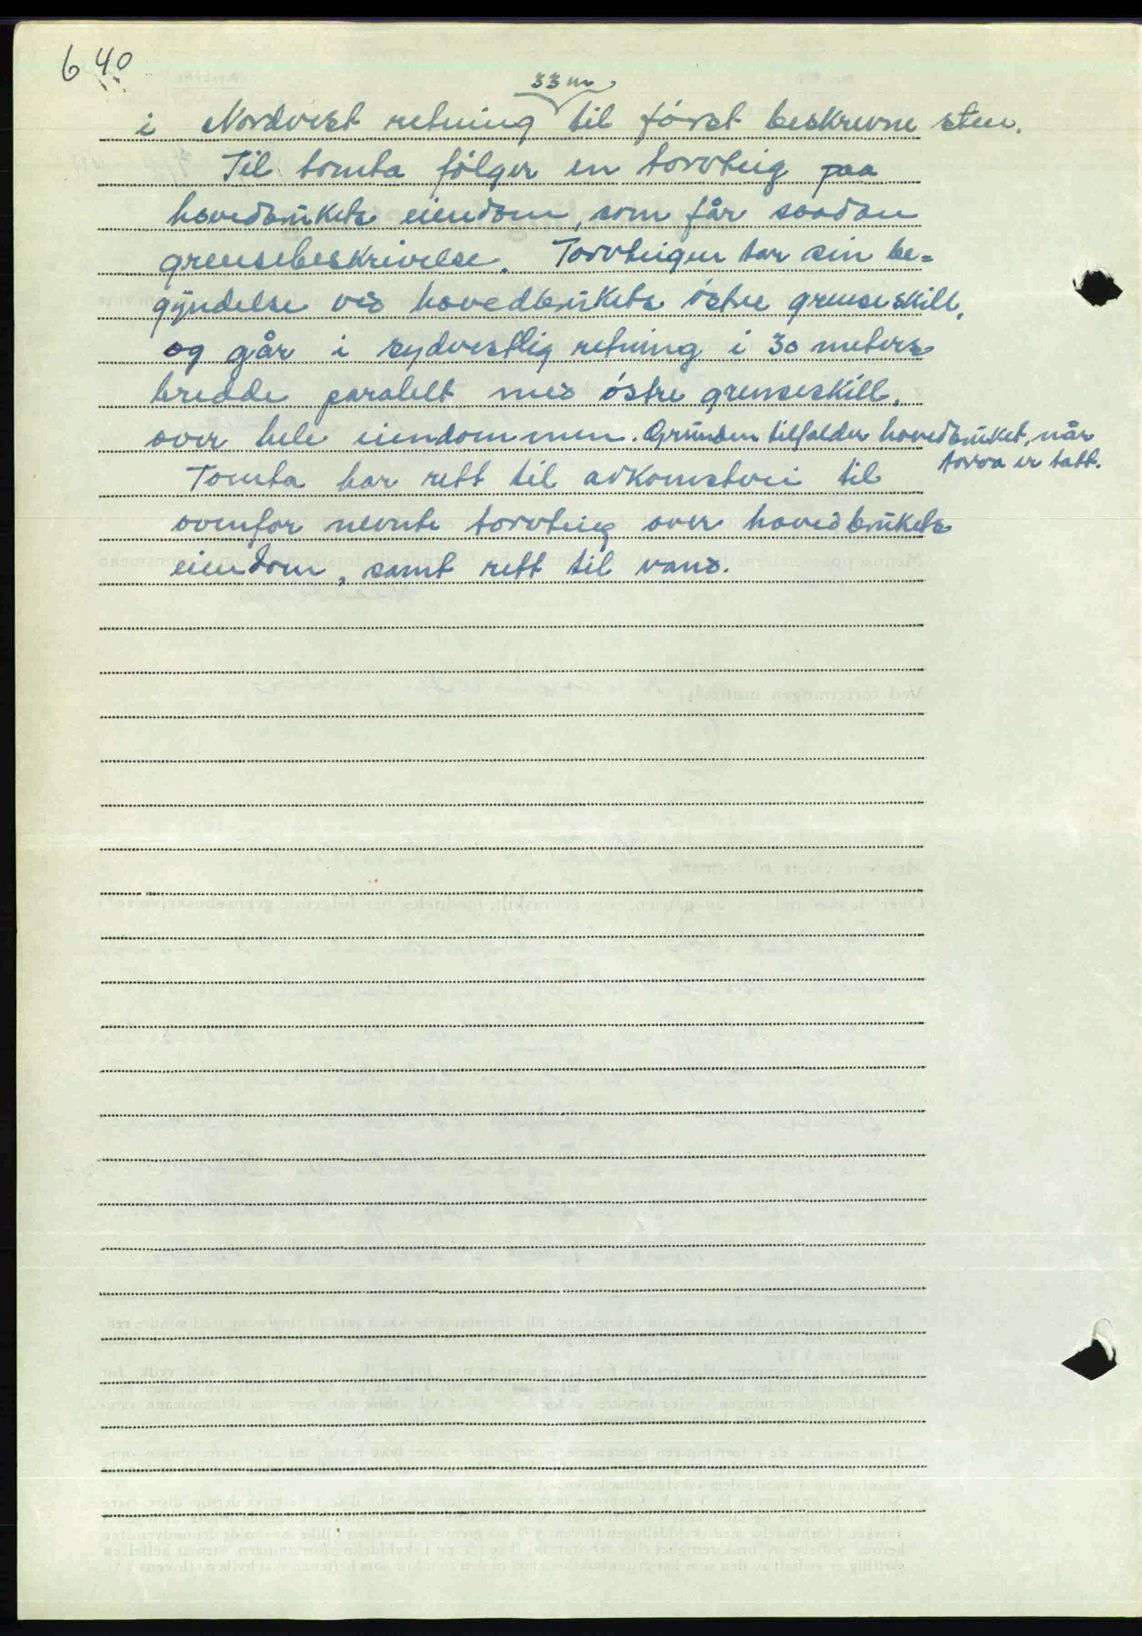 640
33 m
i Nordvest retning til først beskrevne sten.
Til tomta følger en torvteig paa
hovedbrukets eiendom, som får saadan
grensebeskrivelse. Torvteigen tar sin be=
gyndelse ved hovedbrukets østre grenseskill,
og går i sydvestlig retning i 30 meters
bredde paralelt med østre grenseskill,
over hele eiendommen. Grunnen tilfalder hovedbruket, når
torva er tatt.
Tomta har rett til adkomstvei til
ovenfor nevnte torvteig over hovedbrukets
eiendom, samt rett til vand.